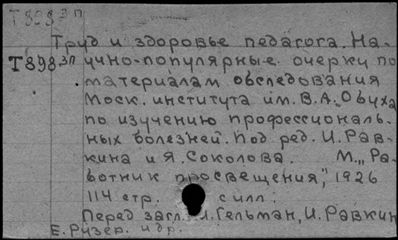 Т898 ЗП
Труд и здоровье педагога. На-
Т898 ЗП учно-популярные очерки по
материалам обследования
Моск. института им. В.А. Обуха
по изучению профессиональ-
ных болезней. Под ред. И. Рав-
кина и Я. Соколова. М., „Ра-
ботник просвещения", 1926
114 стр. с илл.
Перед загл.: И. Гельман, И. Равкин
Е. Рузер. и др.